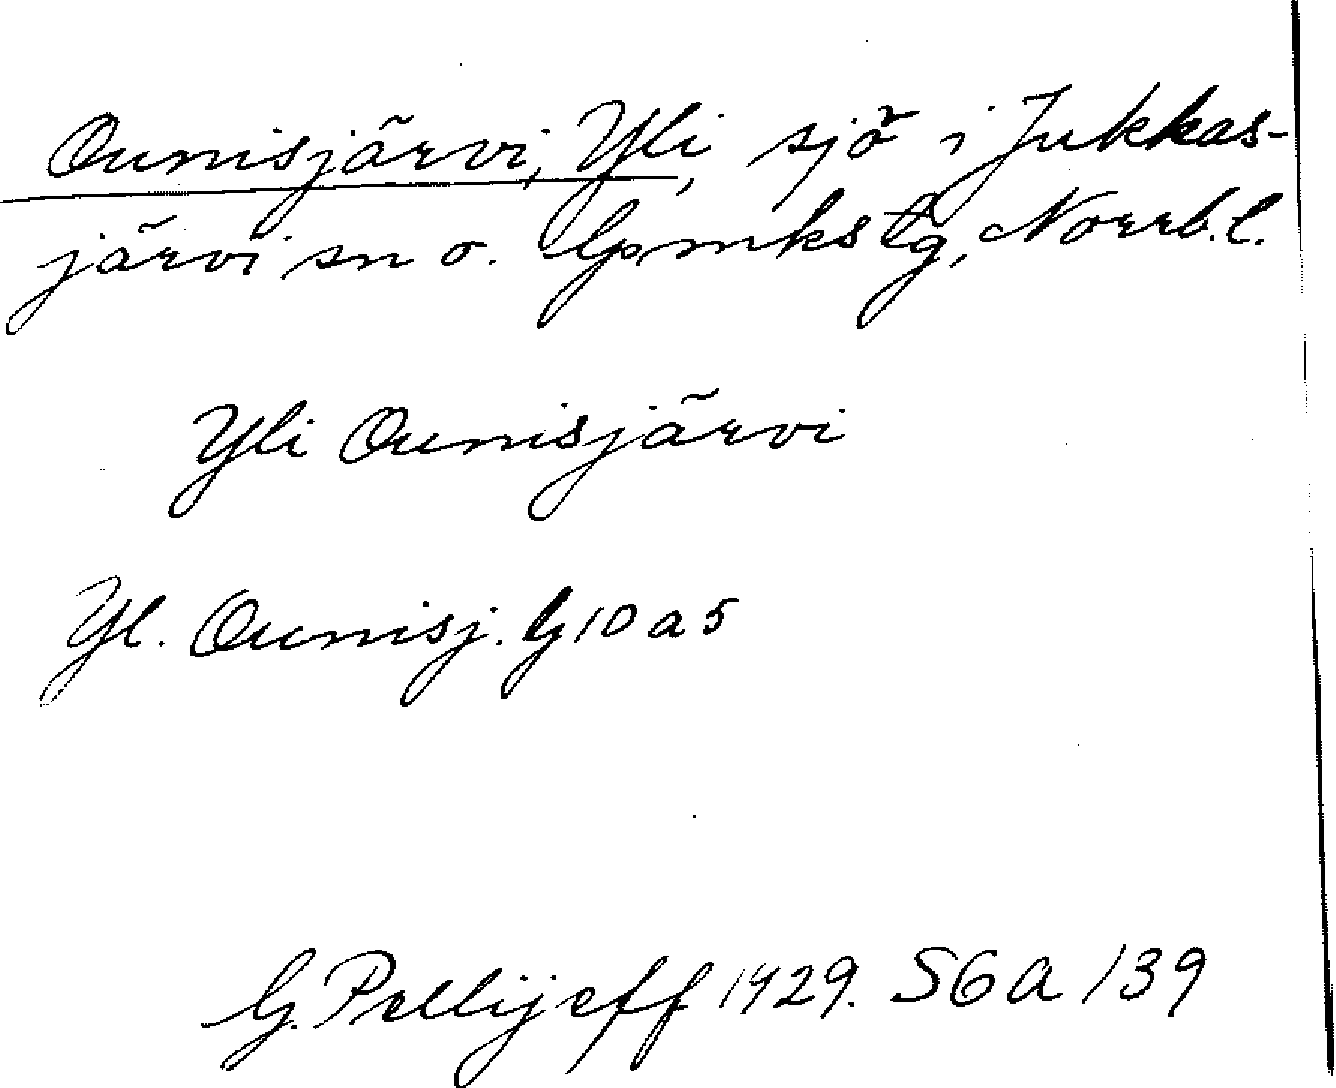 Ounisjärvi, Yli, sjö i Jukkas-
järvi sn o. lpmkstg, Norrb. l.
Yli Ounisjärvi
Yl. Ounisj. G 10 a 5
G. Pellijeff 1929. SGA 139